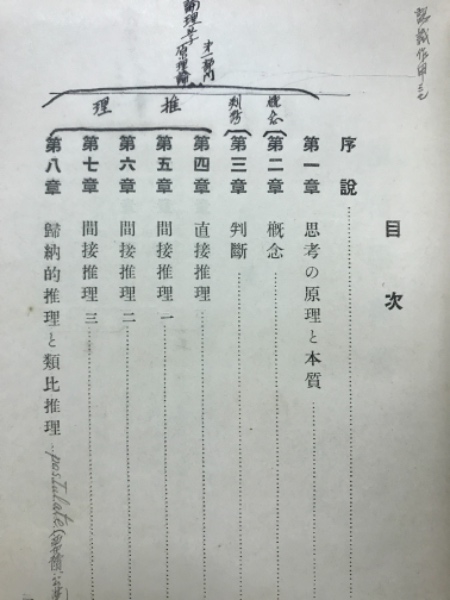 目次
序說
第一章 思考の原理と本質
第二章 概念
第三章 判斷
第四章 直接推理
第五章 間接推理 一
第六章 間接推理 二
第七章 間接推理 三
第八章 歸納的推理と類比推理
postulate
論理學
原理論
第一部門
概念
推理
認識作用